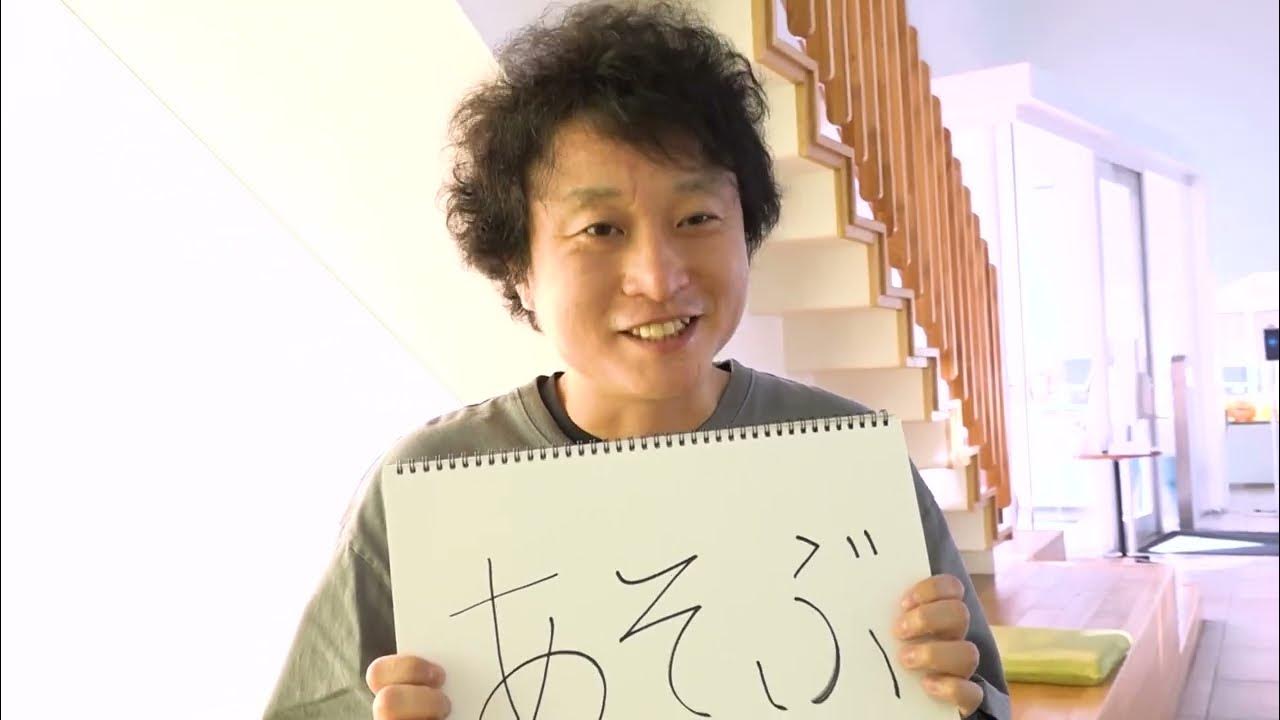 あそぶ